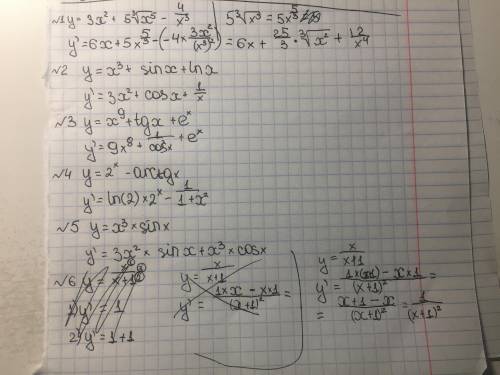 №1 y = 3x² + 5∛x⁵ - 4/x³
5∛x³ = 5x^(5/3)
y' = 6x + 5x^(5/3) - (-4 × 3x²/(x³)²) = 6x + 25/3 · ∛x² + 12/x⁴
№2 y = x³ + sinx + lnx
y' = 3x² + cosx + 1/x
№3 y = x⁹ + tgx + eˣ
y' = 9x⁸ + 1/cos²x + eˣ
№4 y = 2ˣ - arctgx
y' = ln(2) × 2ˣ - 1/(1+x²)
№5 y = x³ × sinx
y' = 3x² × sinx + x³ × cosx
№6 y = x+1
1) y' = 1
2) y' = 1+1
y = x/(x+1)
y' = (1×x - x×1)/(x+1)² =
y = x/(x+1)
y' = (1×(x+1) - x×1)/(x+1)² =
= (x+1-x)/(x+1)² = 1/(x+1)²